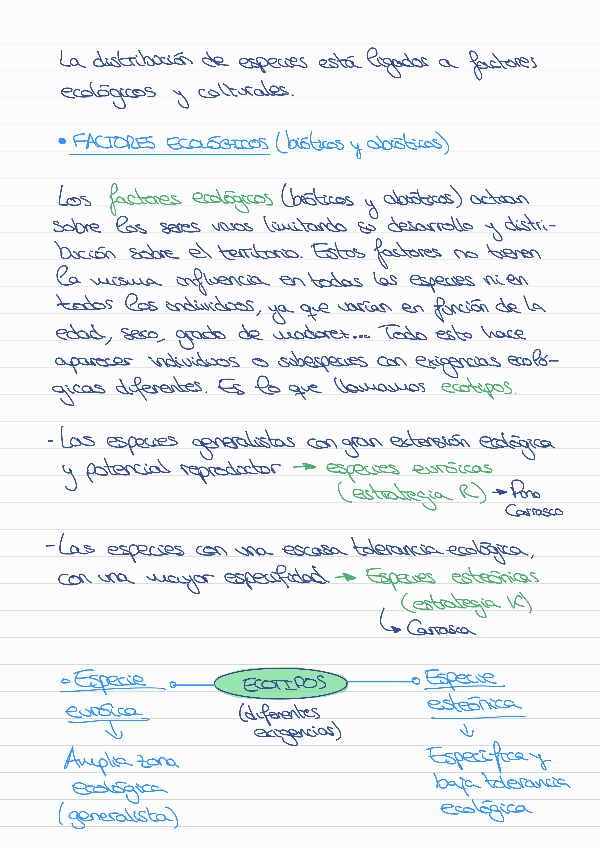 La distribución de especies está ligadas a factores
ecológicos y culturales.
• FACTORES ECOLÓGICOS (bióticos y abióticos)
Los factores ecológicos (bióticos y abióticos) actúan
sobre los seres vivos limitando so desarrollo y distri-
bución sobre el territorio. Estos factores no tienen
la misma influencia en todas las especies ni en
todos los individuos, ya que varían en función de la
edad, sexo, grado de madurez... Todo esto hace
aparecer individuos o subespecies con exigencias ecoló-
gicas diferentes. Es lo que llamamos ecotipos.
- Las especies generalistas con gran extensión ecológica
y potencial reproductor → especies euróicas
(estrategia R) → Pino
Carrasco
- Las especies con una escasa tolerancia ecológica,
con una mayor especifidad → Especies esteónicas
(estrategia K)
↳ Carrasca
• Especie
euróica
↓
Amplia zona
ecológica
(generalista)
ECOTIPOS
(diferentes
exigencias)
Especie
esteónica
↓
Específica y
baja tolerancia
ecológica